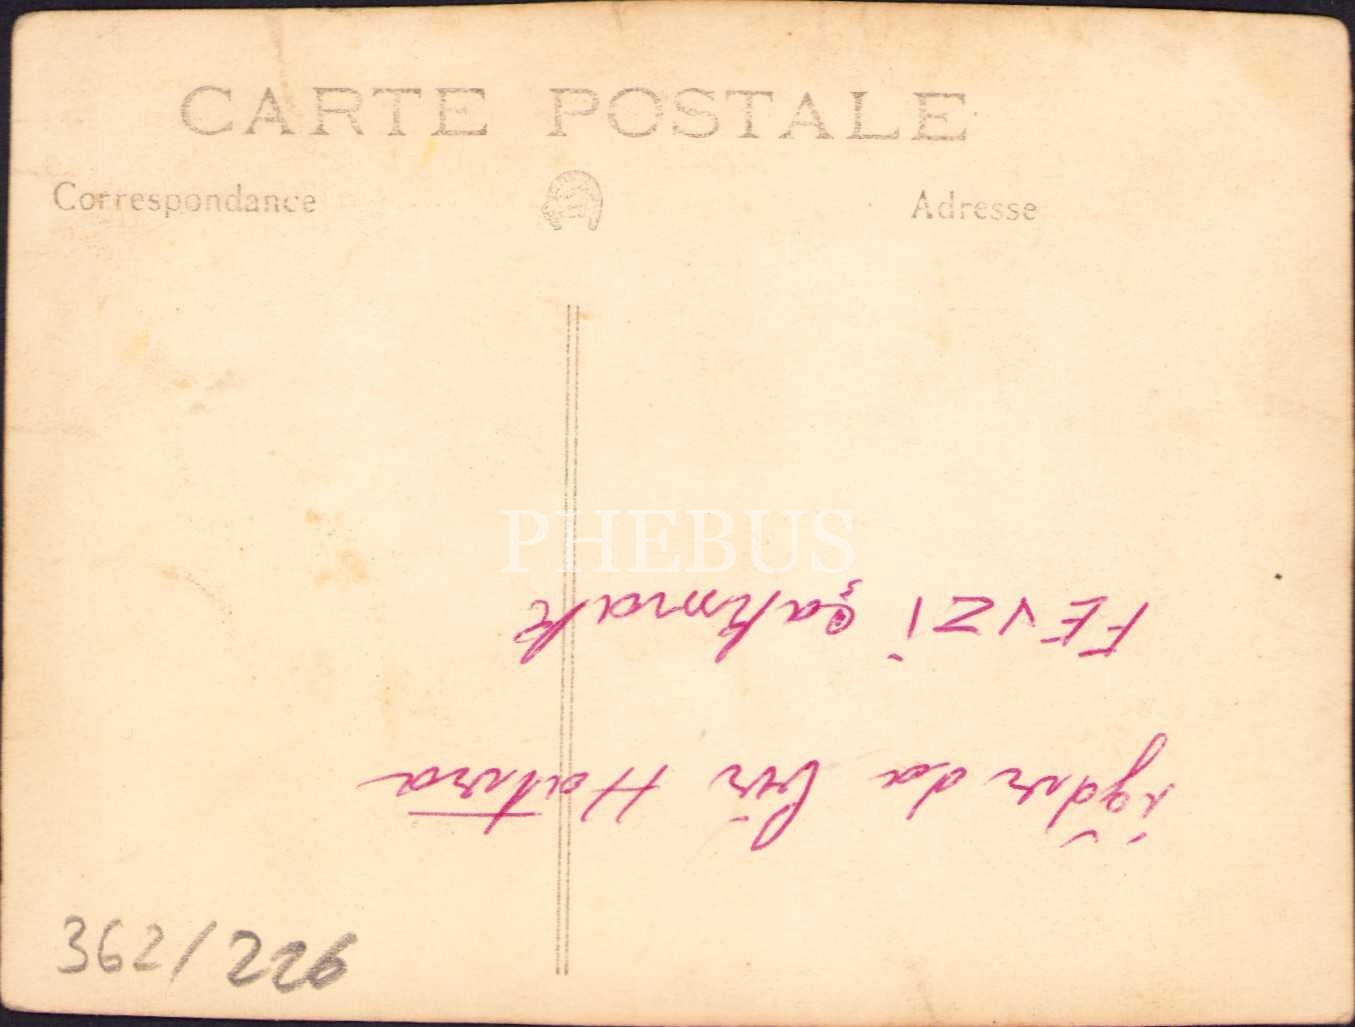 CARTE POSTALE
Correspondance
Adresse
PHEBUS
iğdır da bir Hatıra
FEVZİ Çakmak
362/226